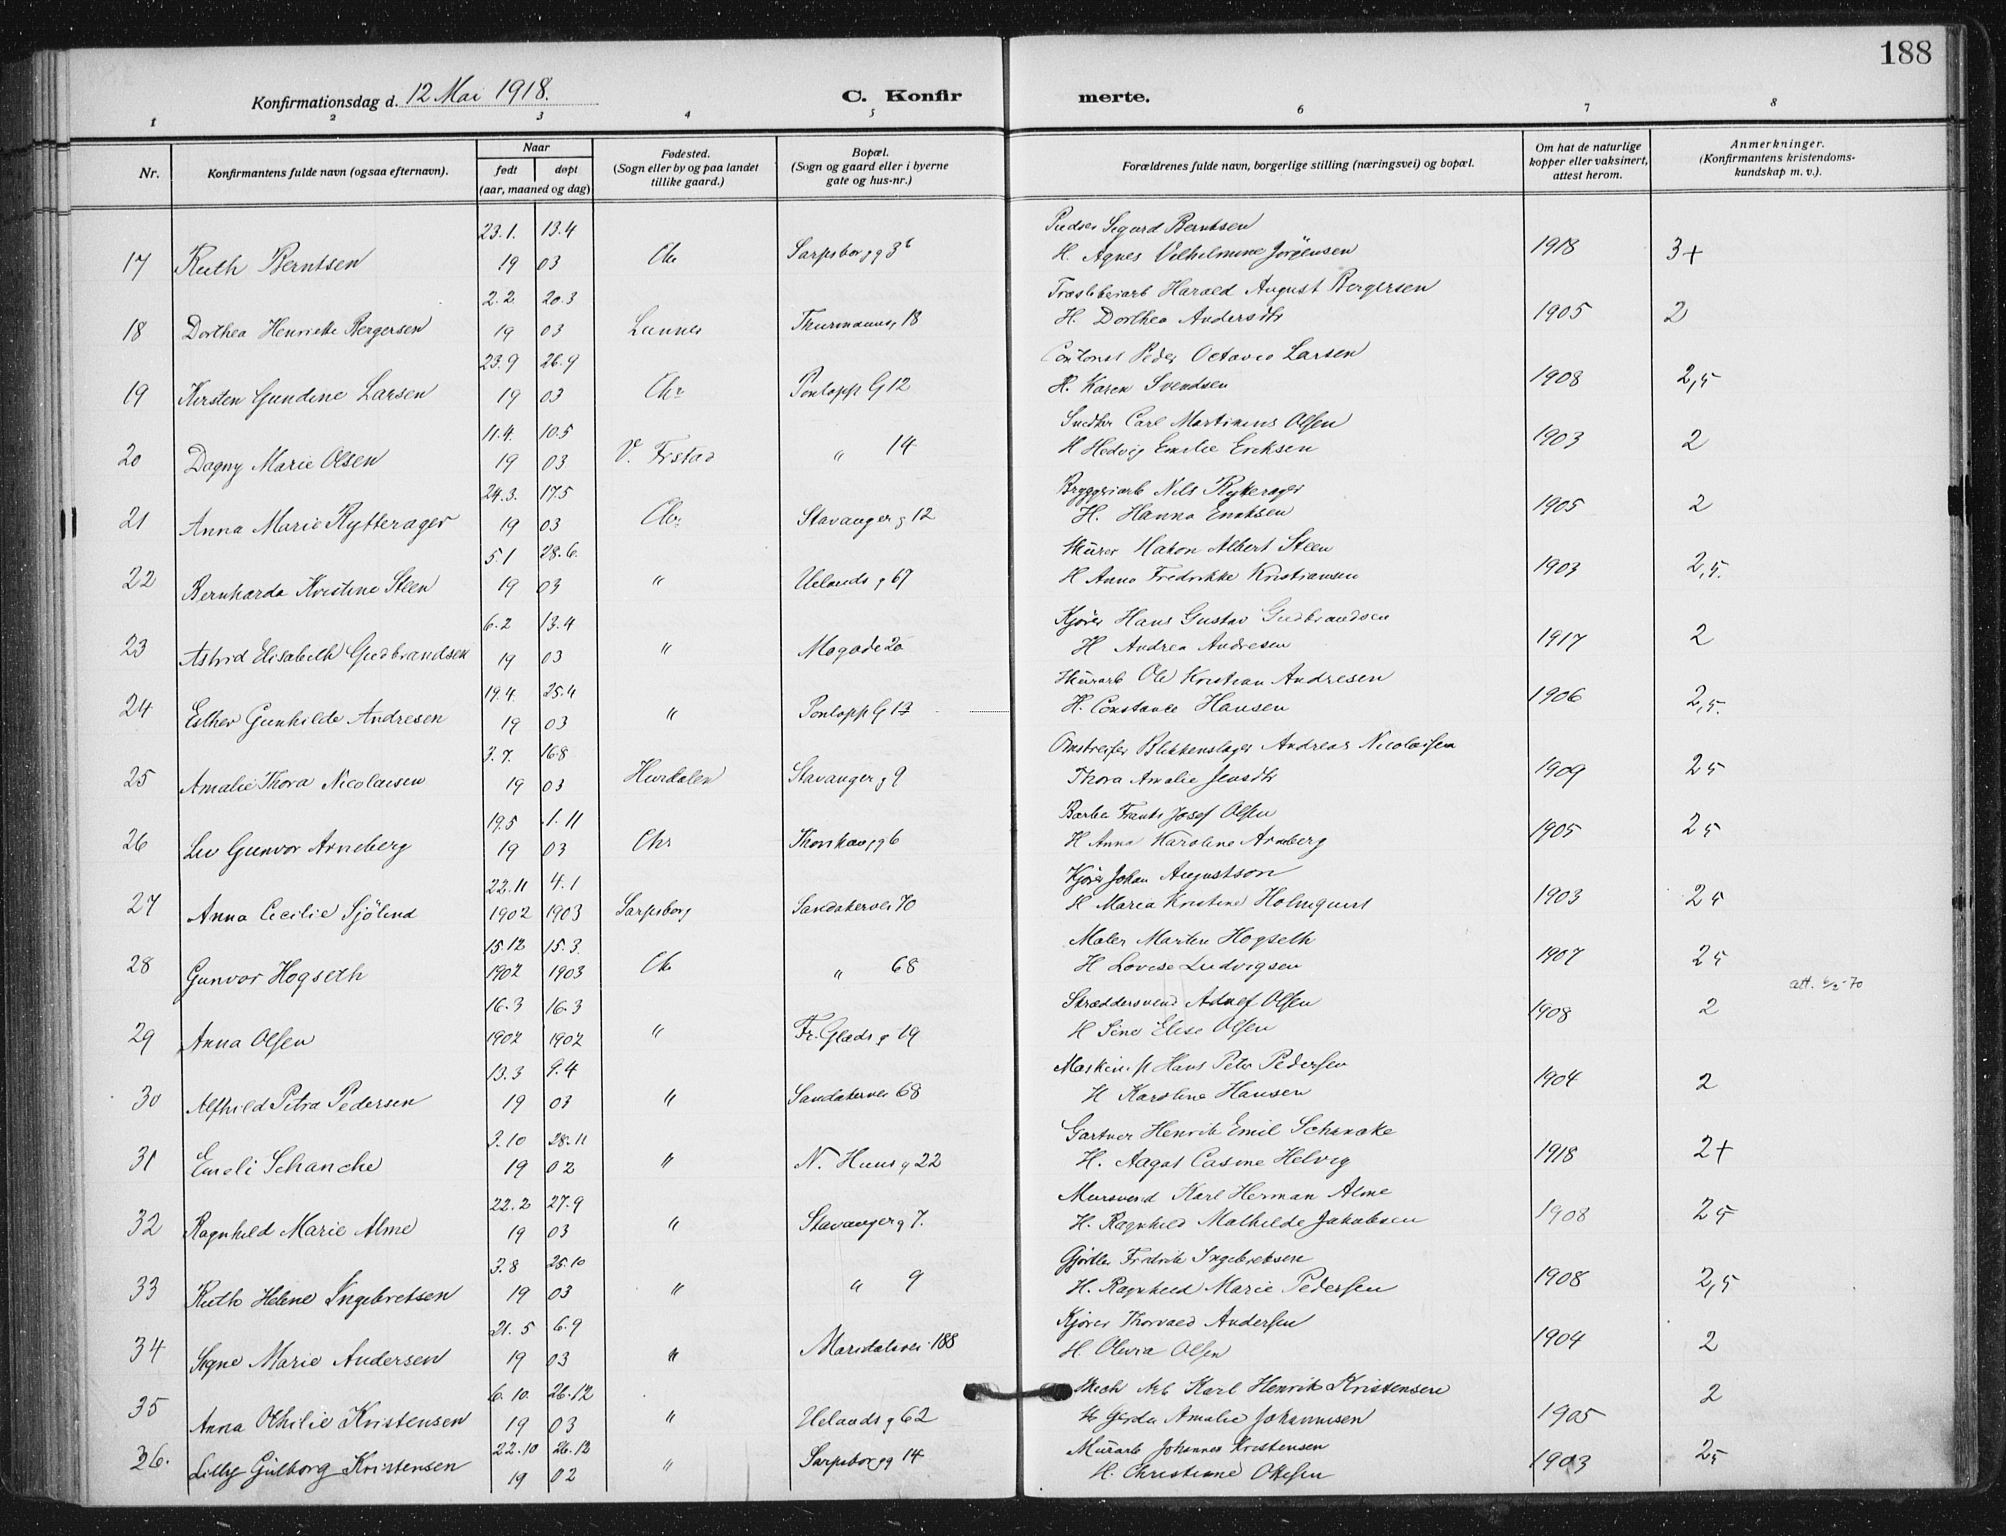 188
Konfirmationsdag d. 12 Mai 1918.
C. Konfir merte.
1 2 3 4 5 6 7 8
Nr.
Konfirmantens fulde navn (ogsaa efternavn).
Naar
født døpt
(aar, maaned og dag)
Fødested.
(Sogn eller by og paa landet
tillike gaard.)
Bopæl.
(Sogn og gaard eller i byerne
gate og hus-nr.)
Forældrenes fulde navn, borgerlige stilling (næringsvei) og bopæl.
Om hat de naturlige
kopper eller vaksinert,
attest herom.
Anmerkninger.
(Konfirmantens kristendoms-
kundskap m. v.).
23.1. 13.4 Pudser Sigurd Berntsen
17 Ruth Berntsen 19 03 Chr Sarpsborgg 36 H. Agnes Vilhelmine Jörgensen 1918 3+
2.2. 20.3 Harald August Bergersen
18 Dorthea Henriette Bergersen 19 03 Lunner Thurmannsg 18 H. Dorthea Andersdtr 1905 2
23.9 26.9 Peder Octavio Larsen
19 Kirsten Gundine Larsen 19 03 Chr Pontopp G 12 H. Karen Svendsen 1908 2,5
11.4. 10.5 Snedker Carl Martinius Olsen
20 Dagny Marie Olsen 19 03 V. Fr.stad " 14 H Hedvig Emilie Eriksen 1903 2
24.3. 17.5 Bryggeriarb Nils Rytterager
21 Anna Marie Rytterager 19 03 Chr Stavangerg 12 H. Hanna Enoksen 1905 2
5.1 28.6. Murer Hakon Albert Steen
22 Bernharda Kristine Steen 19 03 " Uelandsg 67 H Anna Fredrikke Kristiansen 1903 2,5.
6.2 13.4 Kjörer Hans Gustav Gudbrandsen
23 Astrid Elisabeth Gudbrandsen 19 03 " Mogade 20 H Andrea Andresen 1917 2
19.4. 25.4 Murarb Ole Kristian Andresen
24 Esther Gunhilde Andresen 19 03 " Pontopp G 13 H. Constance Hansen 1906 2,5.
3.7. 16.8 Omstreifer Blikkenslager Andreas Nicolaisen
25 Amalie Thora Nicolaisen 19 03 Hurdalen Stavangerg 9 Thora Amalie Jensdtr 1909 25
19.5 1.11 Barber Frants Josef Olsen
26 Liv Gunvor Arneberg 19 03 Chr Thorshavng 6 H Anna Karoline Arneberg 1905 25
22.11 4.1 Kjörer Johan Augustson
27 Anna Cecilie Sjölund 1902 1903 Sarpsborg Sandakervei 70 H Maria Kristine Holmquist 1903 25
15.12 15.3. Maler Martin Hogseth
28 Gunvor Hogseth 1902 1903 Chr " 68 H Lovise Ludvigsen 1907 25
16.3 16.3 Skræddersvend Adolf Olsen att. 6/2-70
29 Anna Olsen 1902 1902 " Fr. Glads g 19 H Sine Elise Olsen 1908 2
13.3 9.4 Hans Peter Pedersen
30 Alfhild Petra Pedersen 19 03 " Sandakervei 68 H Karoline Hansen 1904 2
3.10 28.11 Gartner Henrik Emil Schancke
31 Emeli Schanche 19 02 " N. Huus g 22 H. Aagot Casine Helvig 1918 2+
22.2 27.9 Mursvend Karl Herman Alme
32 Ragnhild Marie Alme 19 03 " Stavangerg 7. H. Ragnhild Mathilde Jakobsen 1908 25
3.8 25.10 Gjörtler Fredrik Ingebretsen
33 Ruth Helene Ingebretsen 19 03 " " 9 H. Ragnhild Marie Pedersen 1908 2,5
21.5 6.9 Kjörer Thorvald Andersen
34 Signe Marie Andersen 19 03 " Maridalsvei 188 H. Olivia Olsen 1904 2
6.10. 26.12 Mech Arb Karl Henrik Kristensen
35 Anna Othilie Kristensen 19 03 " Uelandsg 62 H Gerda Amalie Johannesen 1905 2
22.10 26.12 Murarb Johannes Kristensen
36. Lilly Gulborg Kristensen 19 02 " Sarpsborgg 14 H. Christiane Ottesen 1903 25